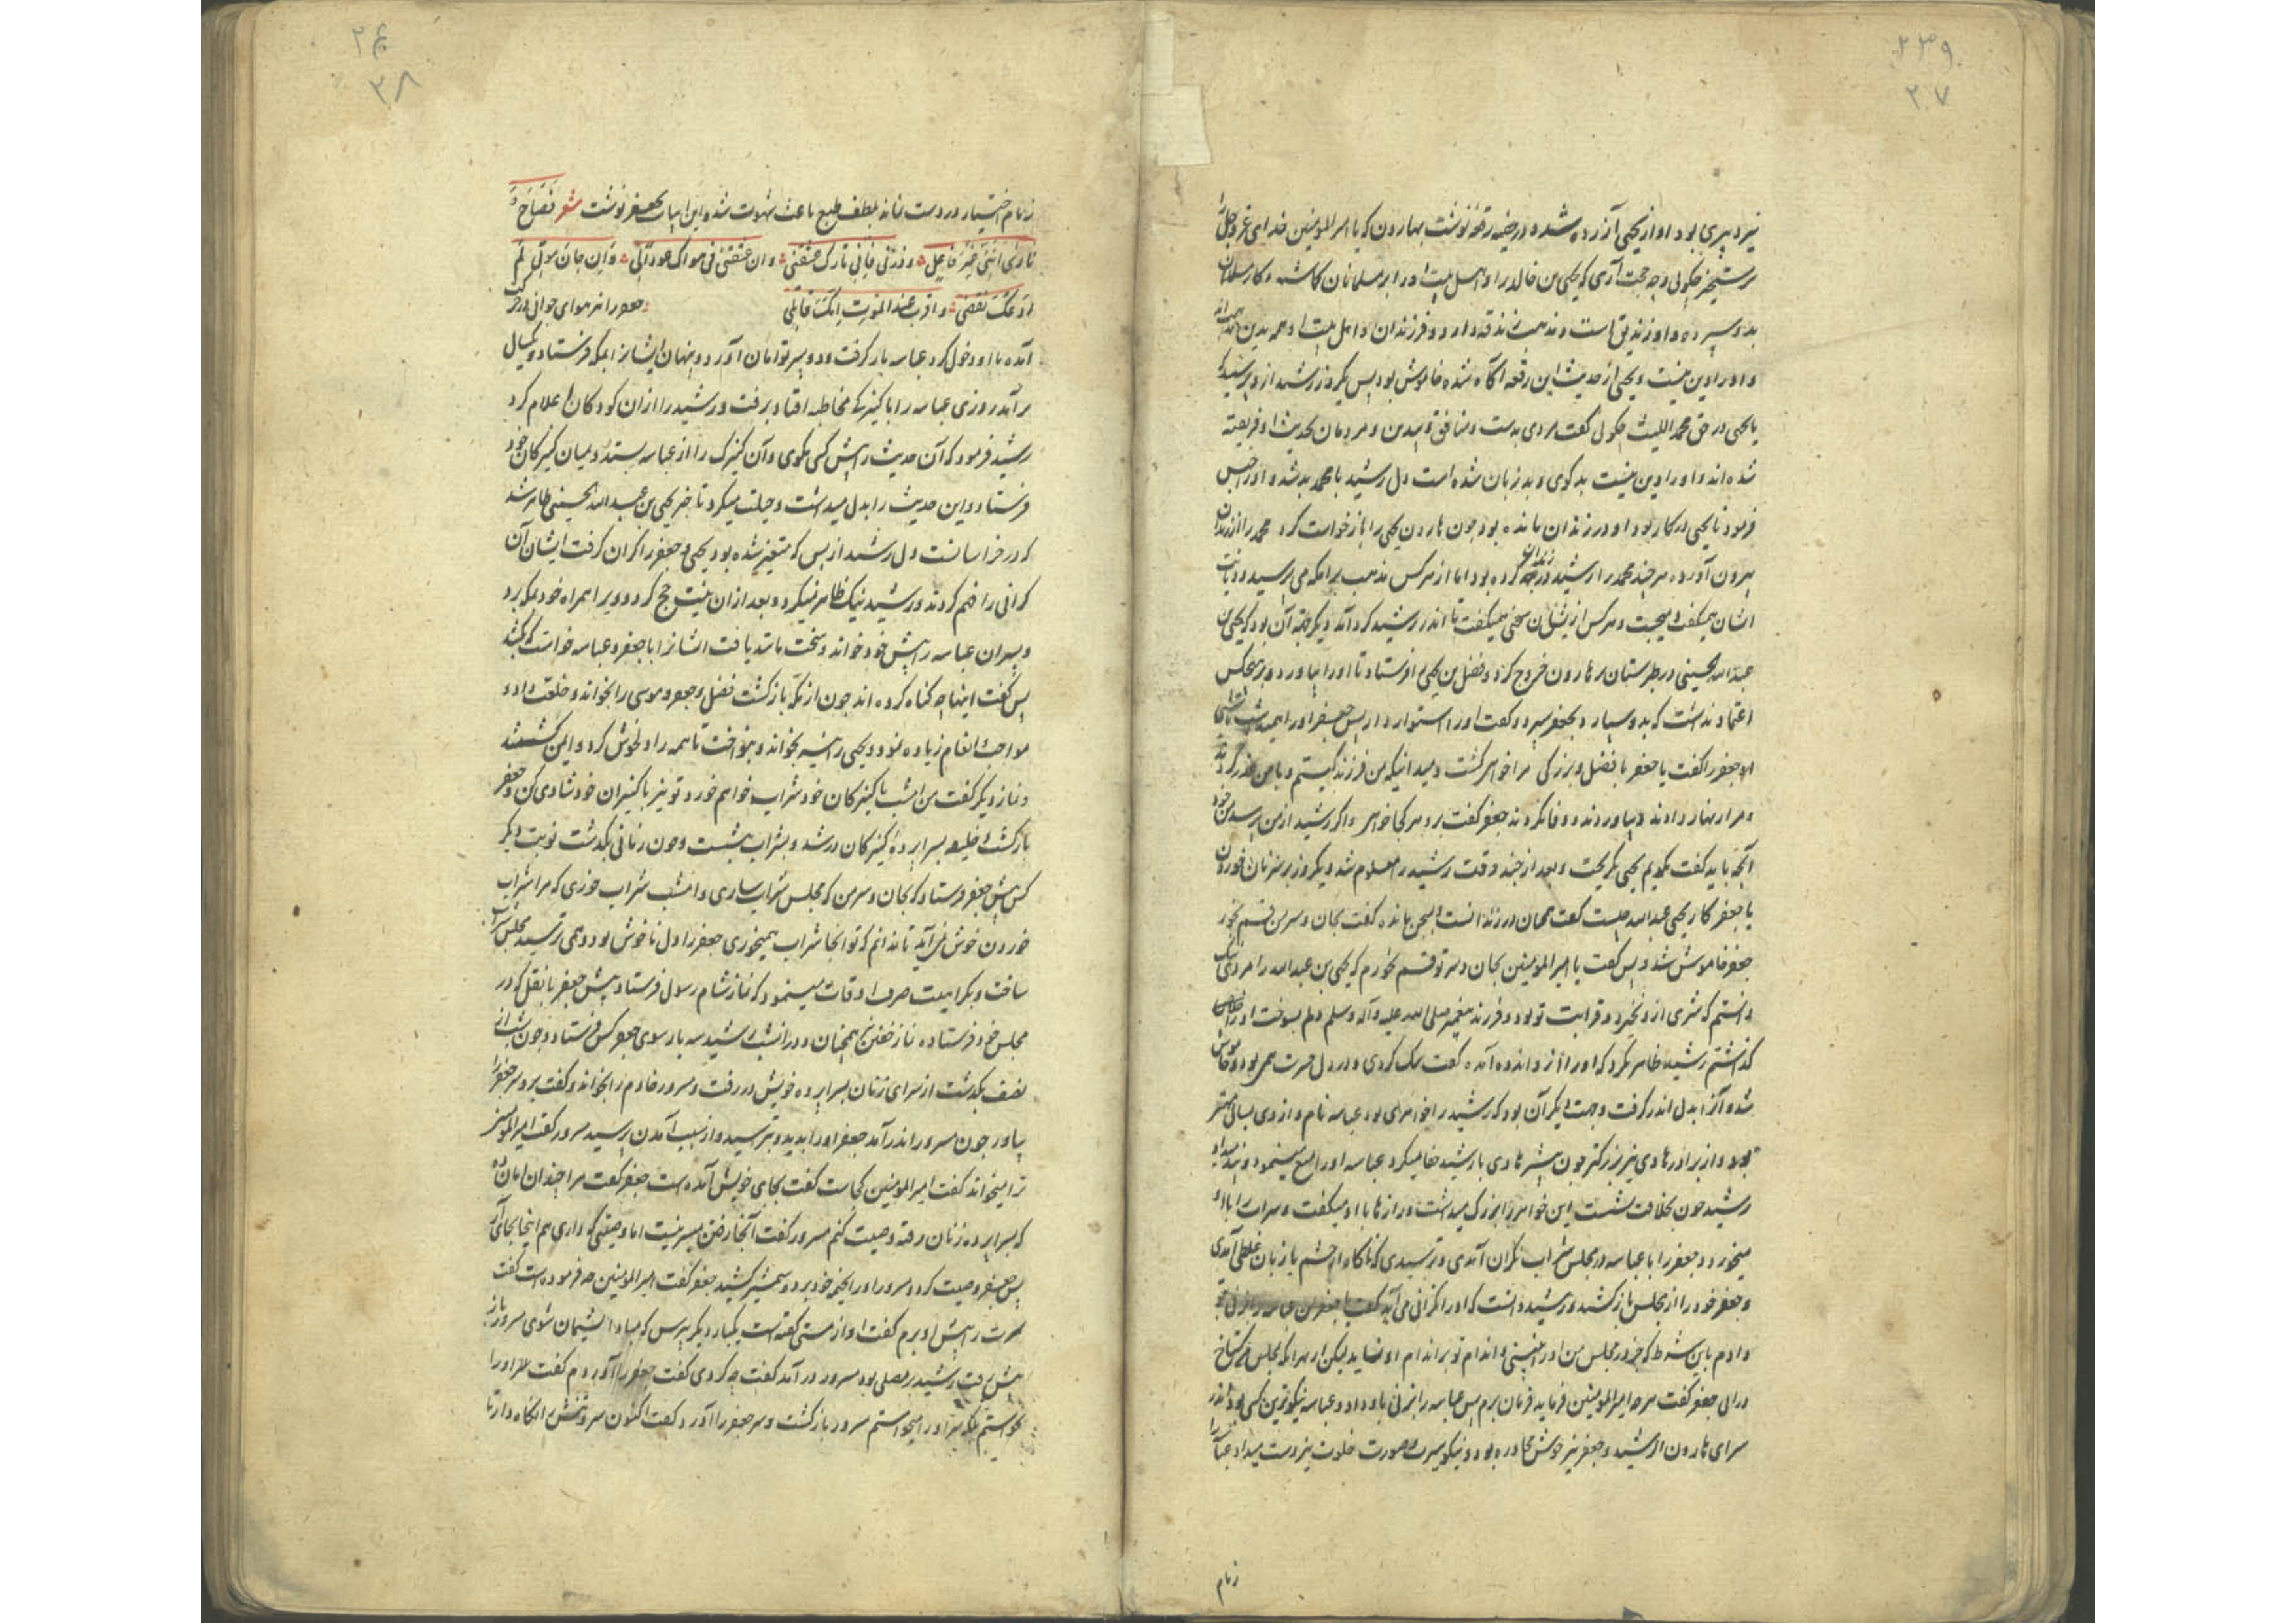 ۲۳۹
۲۰۷
نیز دبیری بود او از یحیی آزرده شد و در خفیه رقعه نوشت بهارون که یا امیرالمومنین خدای عزوجل را
برستخیز چکوئی و چه حجت آری که یحیی بن خالد را و اهل بیت او را بر مسلمانان کماشته و کار مسلمانان
بدو سپرده و او زندیق است و مذهب زندقه دارد و فرزندان و اهل بیت او همه بدین
و او را دین نیست و یحیی از حدیث این رقعه آکاه شده خاموش بود پس یکروز رشید از و پرسید که
یا یحیی در حق محمد اللیث چکوئی کفت مردی بدست و منافق و بیدین و مردمان بحدیث او فریفته
شده اند و او را دین نیست بد کوی و بد زبان شده است دل رشید با محمد بد شد و او را حبس
فرمود تا یحیی در کار بود او در زندان مانده بود چون هارون یحیی را بازخواست کرد محمد را از زندان
بیرون آورده هر چند محمد را رشید در زندان کرده بود اما از هر کس مذهب برامکه می پرسید و دیانت
ایشان همیکفت و میجست و هر کس از ایشان سخنی همیکفت تا اندر رشید کرد آمد دیکر جهة آن بود که یحیی بن
عبدالله الحسینی در طبرستان بر هارون خروج کرد و فضل بن یحیی را فرستاد تا او را بیاورد و بر هیچکس
اعتماد نداشت که بدو سپارد بجعفر سپرد و کفت او را استوار دار پس جعفر او را همیداشت تا شبی
او جعفر را کفت یا جعفر با فضل و بزرکی مرا خواهی کشت و میدانی که من فرزند کیستم و با من غدر کردند
و مرا زنهار دادند و بیاوردند و وفا نکردند جعفر کفت برو هر کجا خواهی و اکر رشید از من پرسد من خود
آنچه باید کفت بکویم یحیی بکریخت و بعد از چند وقت رشید را معلوم شد دیکروز بر سر نان خوردن
یا جعفر کار یحیی عبدالله چیست کفت همان در زندانست و بسجن مانده کفت بجان و سر من قسم بخور
جعفر خاموش شد و پس کفت یا امیرالمومنین بجان و سر تو قسم نخورم که یحیی بن عبدالله را مردی نیک
دانستم که شری ازو نخیزد و قرابت تو بود و فرزند پیغمبر صلی الله علیه وآله وسلم دلم بسوخت او را خلاص
کذاشتم رشید ظاهر نکرد که او را از و اندوه آمده کفت نیک کردی و در دل حسرت همی بود و خاموش
شد و آنرا بدل اندر کرفت وجهت دیکر آن بود که رشید را خواهری بود عباسه نام و از وی بسالی مهتر
بود و از برادر هادی نیز بزرکتر چون پیشتر هادی با رشید جفا میکرد عباسه او را منع مینمود و پند میداد
رشید چون بخلافت نشست این خواهر را بزرک میداشت و رازها با او میکفت و شراب با او
میخورد و جعفر را با عباسه در مجلس شراب نکران آمدی و ترسیدی که ناکاه از چشم یا زبان غلطی آمدی
و جعفر خود را از مجلس باز کشید و رشید دانست که او را کرانی می آید کفت یا جعفر من عباسه را بزنی بتو
دادم باین شرط که جز در مجلس من او را نبینی و اندام تو بر اندام او نساید لیکن از بهر آنکه بمجلس من کستاخ
درائی جعفر کفت هر چه امیرالمومنین فرماید فرمان برم پس عباسه را بزنی باو داد و عباسه نیکوترین کسی بود اندر
سرای هارون الرشید و جعفر نیز خوش محاوره بود و نیکو سیرت و صورت خلوت نیز دست میداد عباسه را
زمام
۳۸
زمام اختیار در دست نمانه بلطف طبع باعث شهوت شد و این ابیات بجعفر نوشت شعر
و ذرنی فانی تارک و ان عشقتی فی هواک
و اقرب عند الموت انک قاتلی جعفر را نیز هوای جوانی در حرکت
آمده با او دخول کرد عباسه بار کرفت و دو پسر توامان آورد و پنهان ایشانرا بمکه فرستاد و یکسال
برآمد روزی عباسه را با کنیزکی مخاطبه افتاد برفت و رشید را از ان کودکان اعلام کرد
رشید فرمود که آن حدیث را پیش کسی مکوی و آن کنیزک را از عباسه بستد و میان کنیزکان خود
فرستاد و این حدیث را بدل میداشت و حیلت میکرد تا خبر یحیی بن عبدالله الحسینی ظاهر شد
که در خراسانست دل رشید از بس که متغیر شده بود یحیی و جعفر را کران کرفت ایشان آن
کرانی را فهم کردند و رشید نیک ظاهر نمیکرد و بعد از ان نیت حج کرد و ویرا همراه خود بمکه برد
و پسران عباسه را پیش خود خواند و سخت مانند یافت ایشانرا با جعفر و عباسه خواست که بکشد
پس کفت اینها چه کناه کرده اند چون از مکه باز کشت فضل و جعفر و موسی را بخواند و خلعت داد و
مواجب و انعام زیاده نمود و یحیی را نیز بخواند و بنواخت تا همه را دلخوش کرد و ایمن کشتند
و نماز دیکر کفت من امشب با کنیزکان خود شراب خواهم خورد تو نیز با کنیزان خود شادی کن و جعفر
باز کشت و خلیفه بسراپرده کنیزکان در شد و بشراب بنشست و چون زمانی بکذشت نوبت دیکر
کس پیش جعفر فرستاد که بجان و سر من که مجلس شراب سازی و امشب شراب خوری که مرا شراب
خوردن خوش نمی آید تا ندانم که تو آنجا شراب همیخوری جعفر را دل ناخوش بود و همی ترسید مجلس شراب
ساخت و بکراهیت صرف اوقات مینمود که نماز شام رسول فرستاد پیش جعفر با نقل که در
مجلس خود فرستاده نماز خفتن همچنان و در انشب رشید سه بار سوی جعفر کس فرستاد و چون شب از
نصف بکذشت از سرای زنان بسراپرده خویش در رفت و مسرور خادم را بخواند و کفت برو سر جعفر را
بیاور چون مسرور اندر آمد جعفر او را بدید و بترسید و از سبب آمدن پرسید مسرور کفت امیرالمومنین
ترا میخواند کفت امیرالمومنین کجاست کفت بجای خویش آمده است جعفر کفت مرا چندان امان ده
که بسراپرده زنان رفته وصیت کنم مسرور کفت آنجا رفتن میسر نیست اما وصیتی که داری هم اینجا بجای آر
پس جعفر وصیت کرد و مسرور او را بخیمه خود برد و شمشیر کشید جعفر کفت امیرالمومنین چه فرموده است کفت
سرت را پیش او برم کفت او از مستی کفته است یکبار دیکر بپرس که مبادا پشیمان شوی مسرور باز
پیش رفت رشید بر مصلی بود مسرور در آمد کفت چه کردی کفت جعفر را آوردم کفت من او را
نخواستم بلکه سر او را میخواستم مسرور باز کشت و سر جعفر را آورد کفت اکنون سر و تنش را نکاه دار تا